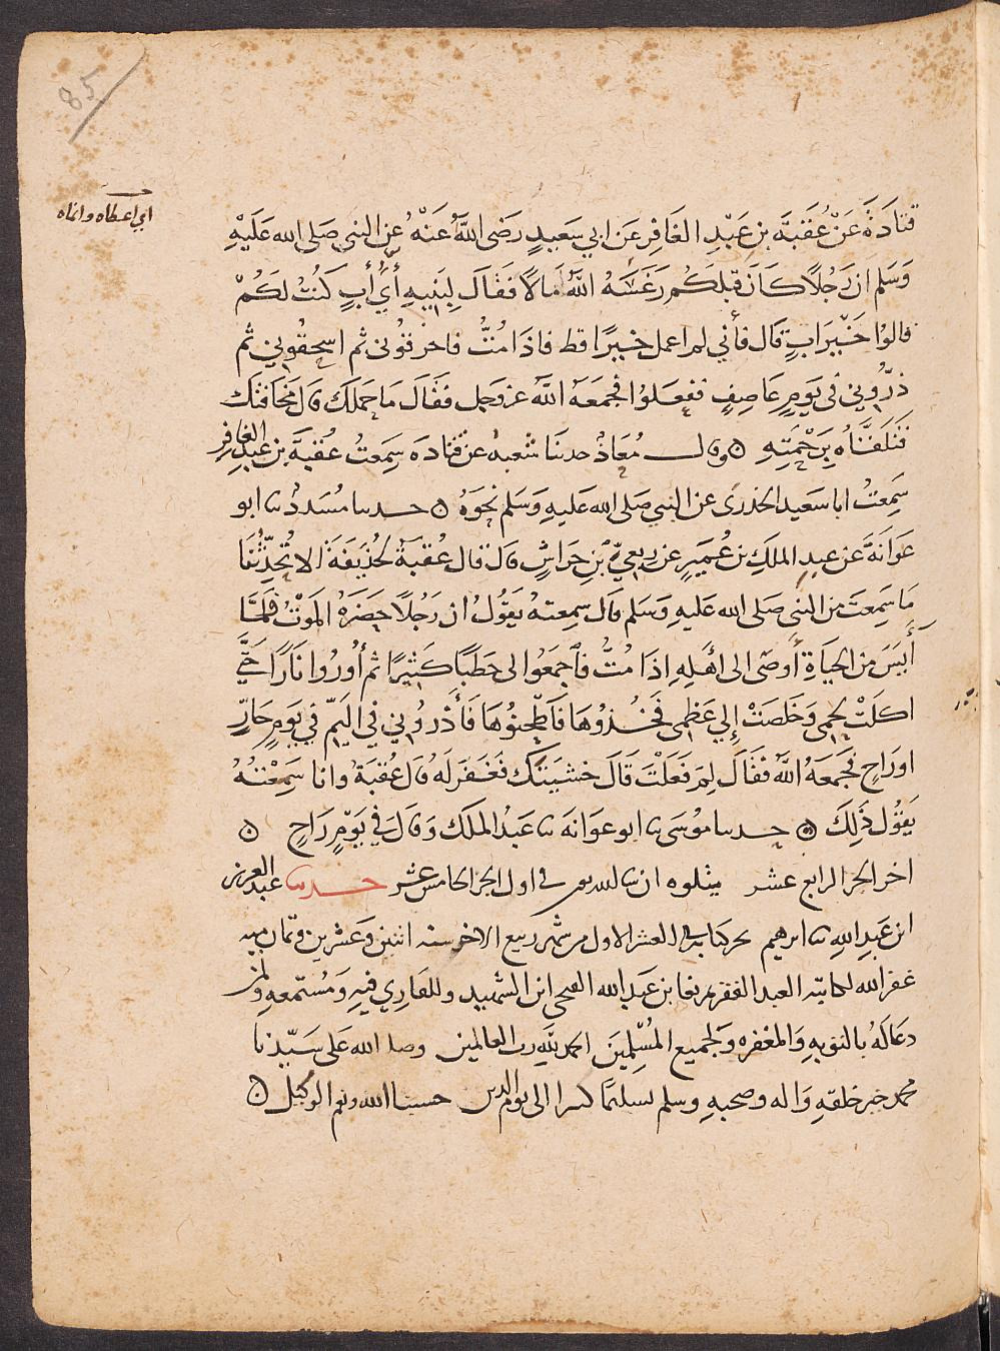 85
اي اعطاه وانماه
قتادَةَ عَنْ عُقبَةَ بنِ عَبْدِ الغَافِرِ عَن ابي سَعيدٍ رَضى اللَّهُ عَنْهُ عن النبي صَلى الله عَلَيْهِ
وَسَلم ان رَجُلًا كانَ قبلَكُم رَغَسَهُ اللَّهُ مَالًا فَقَالَ لِبَنِيهِ أَيُّ أَبٍ كُنتُ لَكُمْ
قالوُا خَيْرَ ابٍ قَال فأني لم اعمل خيرًا قط فاذَا مُتُّ فاحرقوُنى ثم اسحقوُني ثم
ذرُّوني في يَومٍ عَاصِفٍ ففعَلوُا فجمَعَهُ اللَّه عزوجل فَقَالَ مَا حَملَكَ قالَ مَخَافتكَ
فَتَلَقَّاهُ بِرَحْمَتِهِ ه وقال مُعَاذٌ حدثنَا شعبه عن قتادَه سَمِعتُ عُقبَةَ بن عَبدِ الغافر
سَمِعتُ ابا سَعيد الخدرى عن النبي صَلى الله عَليهِ وَسَلم نحوَهُ ه حدثنا مُسَددٌ نا ابو
عَوَانَةَ عن عبدِ الملَكِ بن عُمَيرٍ عن رِبعِيّ بنِ حِرَاشٍ قالَ قال عُقبَةُ لحُذَيفَةَ الا تُحَدِّثُنَا
مَا سَمِعتَ من النبى صَلى الله عَليهِ وَسَلم قال سمِعتهُ يَقوُلُ ان رَجُلًا حَضَرَهُ المَوْتُ فلَمَّا
أَيِسَ من الحيَاةِ أَوصَى الى اهَلِهِ اذَا مُتُّ فَاجمَعُوا لى حَطبًا كَثيرًا ثم أَوُرُوا نَارًا حَتَّي
اكلَتْ لحمى وَخَلصَتْ إِلي عَظمى فَخُذوُهَا فَاطحنوُهَا فَأَذروُني في اليَمِّ في يَومٍ حَارٍّ
اورَاحٍ فجَمَعَهُ اللَّهُ فقَالَ لِمَ فَعَلْتَ قَالَ خشيَتكَ فغَفَرَ لَهُ قالَ عُقبَةُ وانا سَمِعْتُهُ
يَقوُل ذَلِكَ ه حدثنا موُسَى نا ابو عَوَانَه نا عَبدُ الملَك وَقالَ في يَوْمٍ رَاحٍ ه
اخر الجز الرابع عشر يتلوه ان شا الله تعى في اول الجز الخامس عشر حدثنا عبد العزيز
ابن عَبدِ الله نا ابرهيم نحر كتابه في العشر الاول من شهر ربيع الاخر سنه اثنين وَعشرين وثمان ميه
غفر الله لكاتبه العبد الفقير بن عَبدِ الله ابن الشهيد وللقاري فيهِ وَمُستمعهِ ولمن
دعَا لَهُ بالتوبهِ وَالمغفره وَلجميع المُسْلِمينَ الحمد لله رب العالمين وصلى الله عَلى سَيّدنا
محمد خير خلقهِ وَاله وصحبهِ وسلم تسليمًا كثيرا الى يوم الدين حسبنا الله ونعم الوكيل ه